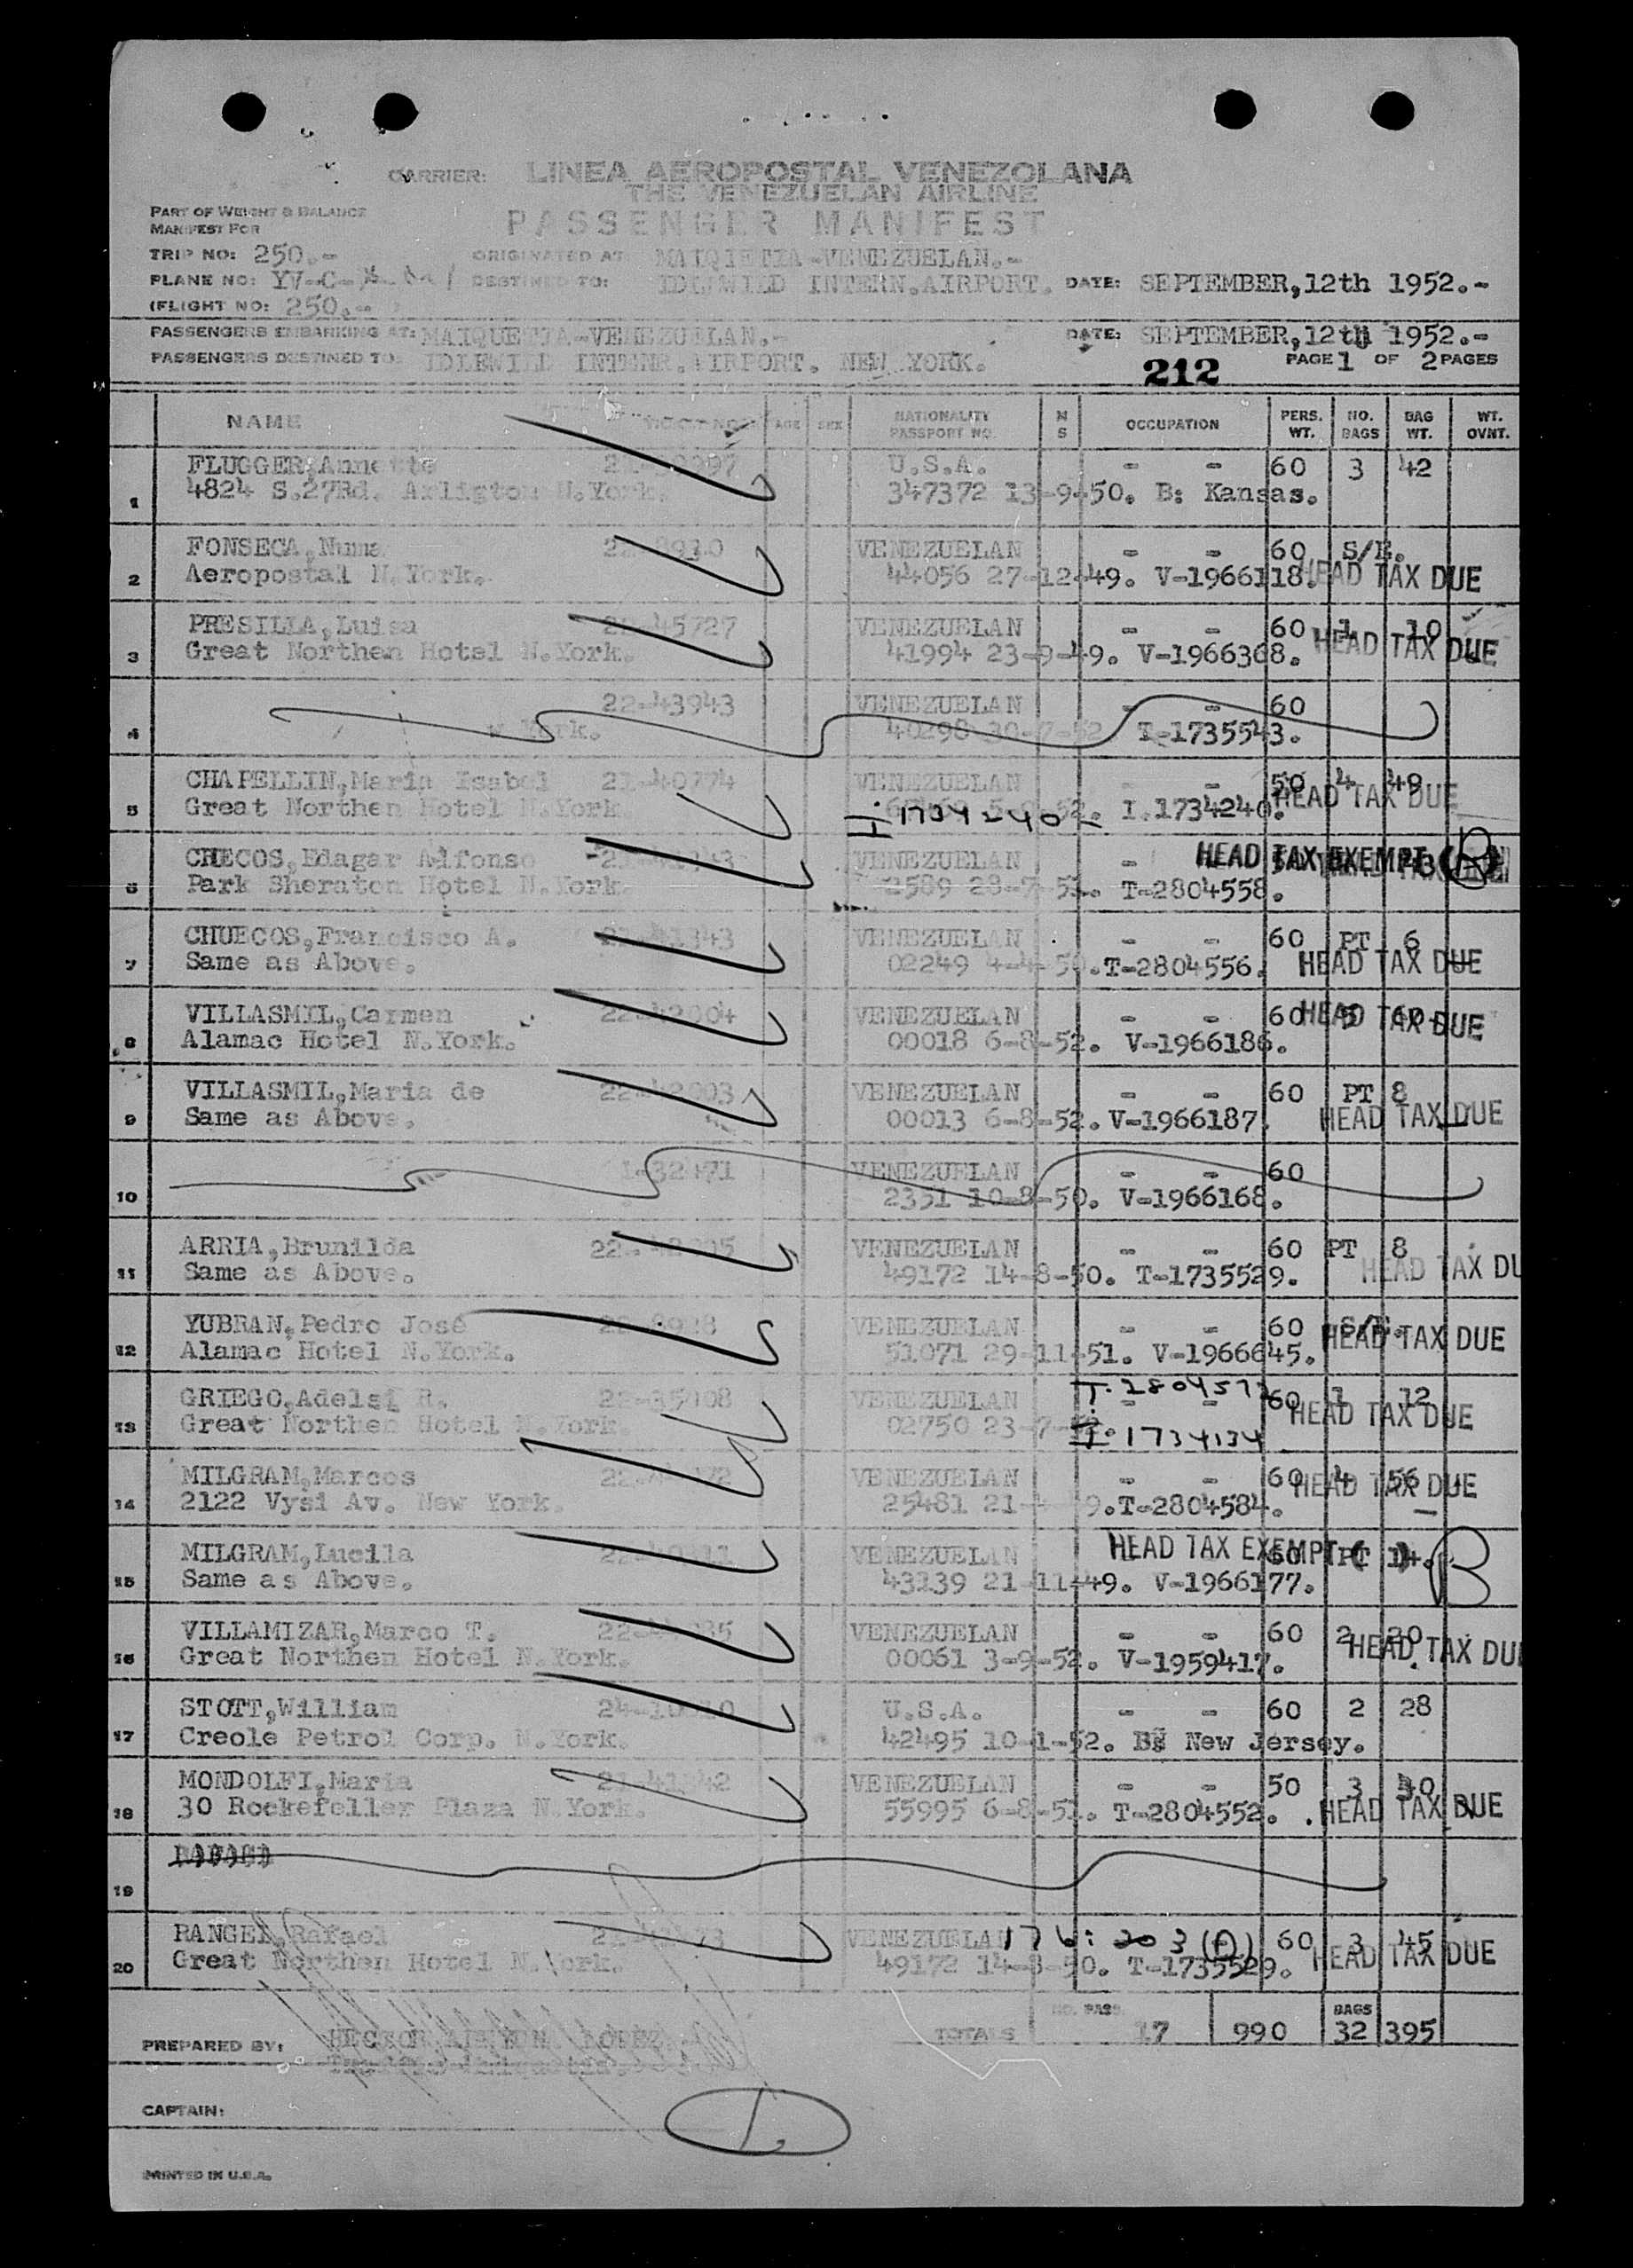 CARRIER: LINEA AEROPOSTAL VENEZOLANA
THE VENEZUELAN AIRLINE
PASSENGER MANIFEST
PART OF WEIGHT & BALANCE
MANIFEST FOR
TRIP NO: 250.- ORIGINATED AT: MAIQIETIA-VENEZUELAN.-
PLANE NO: YV-C- DESTINED TO: IDLEWILD INTERN.AIRPORT. DATE: SEPTEMBER,12th 1952.-
(FLIGHT NO: 250.- )
PASSENGERS EMBARKING AT: MAIQUETIA-VENEZUELAN.- DATE: SEPTEMBER,12th 1952.-
PASSENGERS DESTINED TO: IDLEWILD INTENR.AIRPORT. NEW YORK. 212 PAGE 1 OF 2 PAGES
NAME TICKET NO. AGE SEX NATIONALITY PASSPORT NO. M S OCCUPATION PERS. WT. NO. BAGS BAG WT. WT. OVNT.
FLUGGER,Annette U.S.A. - - 60 3 42
1 4824 S.27Rd. Arligton N.York. 347372 13-9-50. B: Kansas.
FONSECA,Numa VENEZUELAN - - 60 S/E.
2 Aeropostal N.York. 44056 27-12-49. V-1966118. HEAD TAX DUE
PRESILLA,Luisa 22-45727 VENEZUELAN - - 60 1 10
3 Great Northen Hotel N.York. 41994 23-9-49. V-1966368. HEAD TAX DUE
22-43943 VENEZUELAN - - 60
4 York. 40298 30-7-52 T-1735543.
CHAPELLIN,Maria Isabel 21-40774 VENEZUELAN - 50 4 49
5 Great Northen Hotel N.York. I 1734240 52. I.1734240. HEAD TAX DUE
CHECOS,Edagar Alfonso VENEZUELAN - HEAD TAX EXEMPT
6 Park Sheraton Hotel N.York. 2589 28-7-51. T-2804558.
CHUECOS,Francisco A. 21-41343 VENEZUELAN - - 60 PT 6
7 Same as Above. 02249 4-4-50. T-2804556. HEAD TAX DUE
VILLASMIL,Carmen 22-42904 VENEZUELAN - - 60
8 Alamac Hotel N.York. 00018 6-8-52. V-1966186. HEAD TAX DUE
VILLASMIL,Maria de 22-42903 VENEZUELAN - - 60 PT 8
9 Same as Above. 00013 6-8-52. V-1966187. HEAD TAX DUE
VENEZUELAN - - 60
10 2351 10-8-50. V-1966168.
ARRIA,Brunilda VENEZUELAN - - 60 PT 8
11 Same as Above. 49172 14-8-50. T-1735529. HEAD TAX DU
YUBRAN,Pedro José VENEZUELAN - - 60 S/E.
12 Alamac Hotel N.York. 51071 29-11-51. V-1966645. HEAD TAX DUE
GRIEGO,Adelsi R. VENEZUELAN - - 60 1 12
13 Great Northen Hotel N.York. 02750 23-7- I-1734134 HEAD TAX DUE
MILGRAM,Marcos VENEZUELAN - - 60 4 56
14 2122 Vysi Av. New York. 25481 21- T-2804584. HEAD TAX DUE
MILGRAM,Lucila VENEZUELAN HEAD TAX EXEMPT ( ) 60 PT 14. B
15 Same as Above. 43139 21-11-49. V-1966177.
VILLAMIZAR,Marco T. VENEZUELAN - - 60 2 20
16 Great Northen Hotel N.York. 00061 3-9-52. V-1959417. HEAD TAX DUE
STOTT,William U.S.A. - - 60 2 28
17 Creole Petrol Corp. N.York. 42495 10-1-52. B: New Jersey.
MONDOLFI,Maria 21-41342 VENEZUELAN - - 50 3 40
18 30 Rockefeller Plaza N.York. 55995 6-8-51. T-2804552. HEAD TAX DUE
19
RANGEL,Rafael VENEZUELAN 60 3 45
20 Great Northen Hotel N.York. 49172 14-8-50. T-1735529. HEAD TAX DUE
TOTALS NO. PASS. 17 990 BAGS 32 395
PREPARED BY: HECTOR LOPEZ
CAPTAIN:
1
PRINTED IN U.S.A.